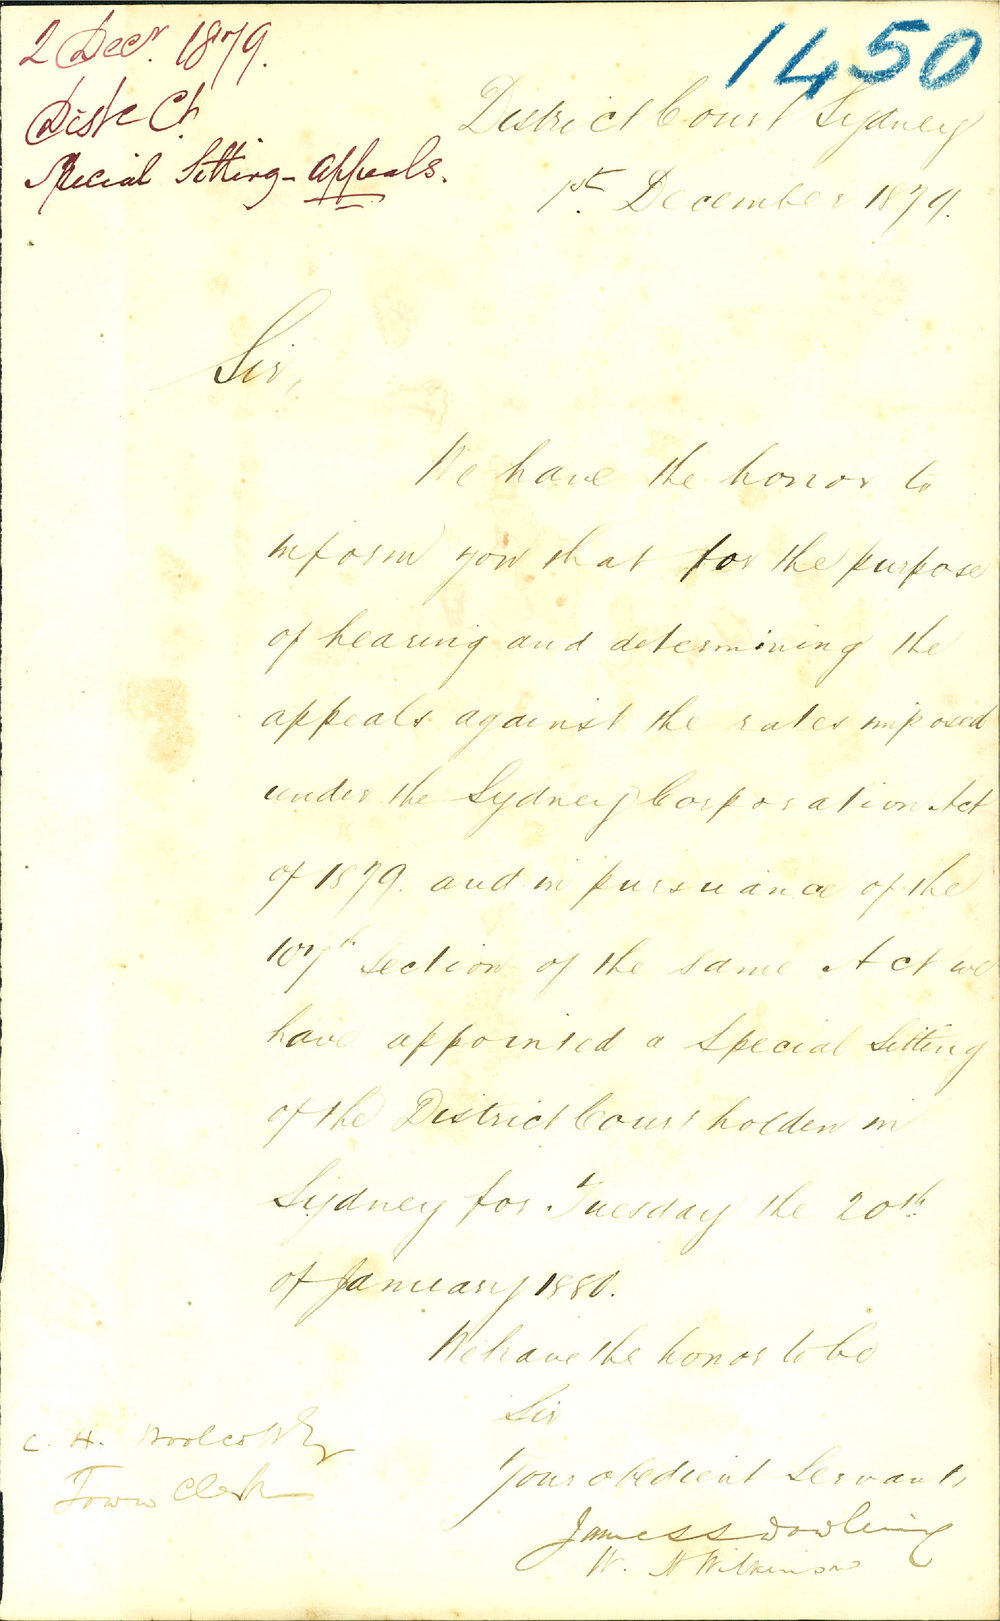 2 Decr. 1879.
Distr Ct.
Special Sitting - Appeals.
1450
District Court Sydney
1st. December 1879.
Sir,
We have the honor to
inform you that for the purpose
of hearing and determining the
appeals against the rates imposed
under the Sydney Corporation Act
of 1879. and in pursuance of the
107th section of the same Act we
have appointed a Special Sitting
of the District Court holden in
Sydney for Tuesday the 20th.
of January 1880.
We have the honor to be
Sir
Your obedient Servants,
James S Dowling
W. H Wilkinson
C. H. Woolcott Esq
Town Clerk